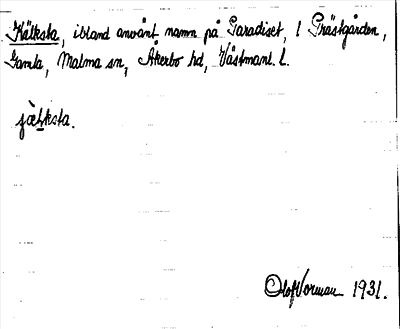 Kälksta, ibland använt namn på Paradiset, 1 Prästgården,
Gamla, Malma sn, Åkerbo hd, Västmanl. l.
Olof Vorman 1931.